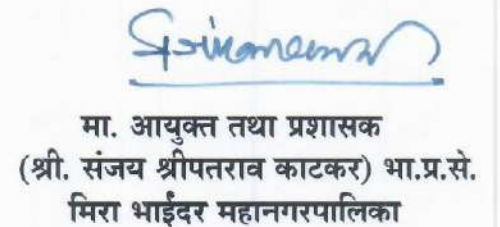 मा. आयुक्त तथा प्रशासक
(श्री. संजय श्रीपतराव काटकर) भा.प्र.से.
मिरा भाईंदर महानगरपालिका